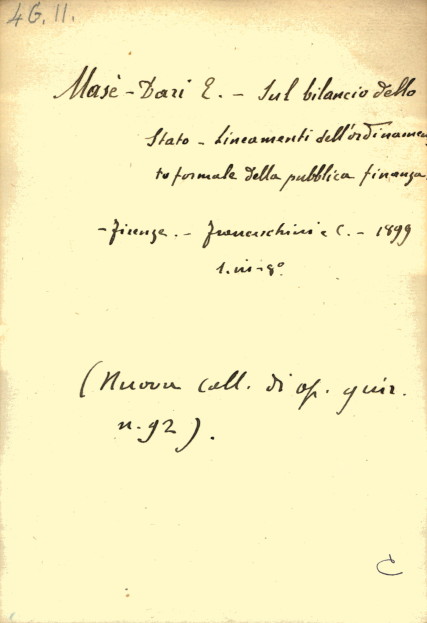 4G.11.
Masè-Dari E. - Sul bilancio dello
Stato - Lineamenti dell'ordinamen
to formale della pubblica finanza.
- Firenze. - Franceschini e C. - 1899
1. in-8°
(Nuova coll. di op. giur.
n. 92).
C